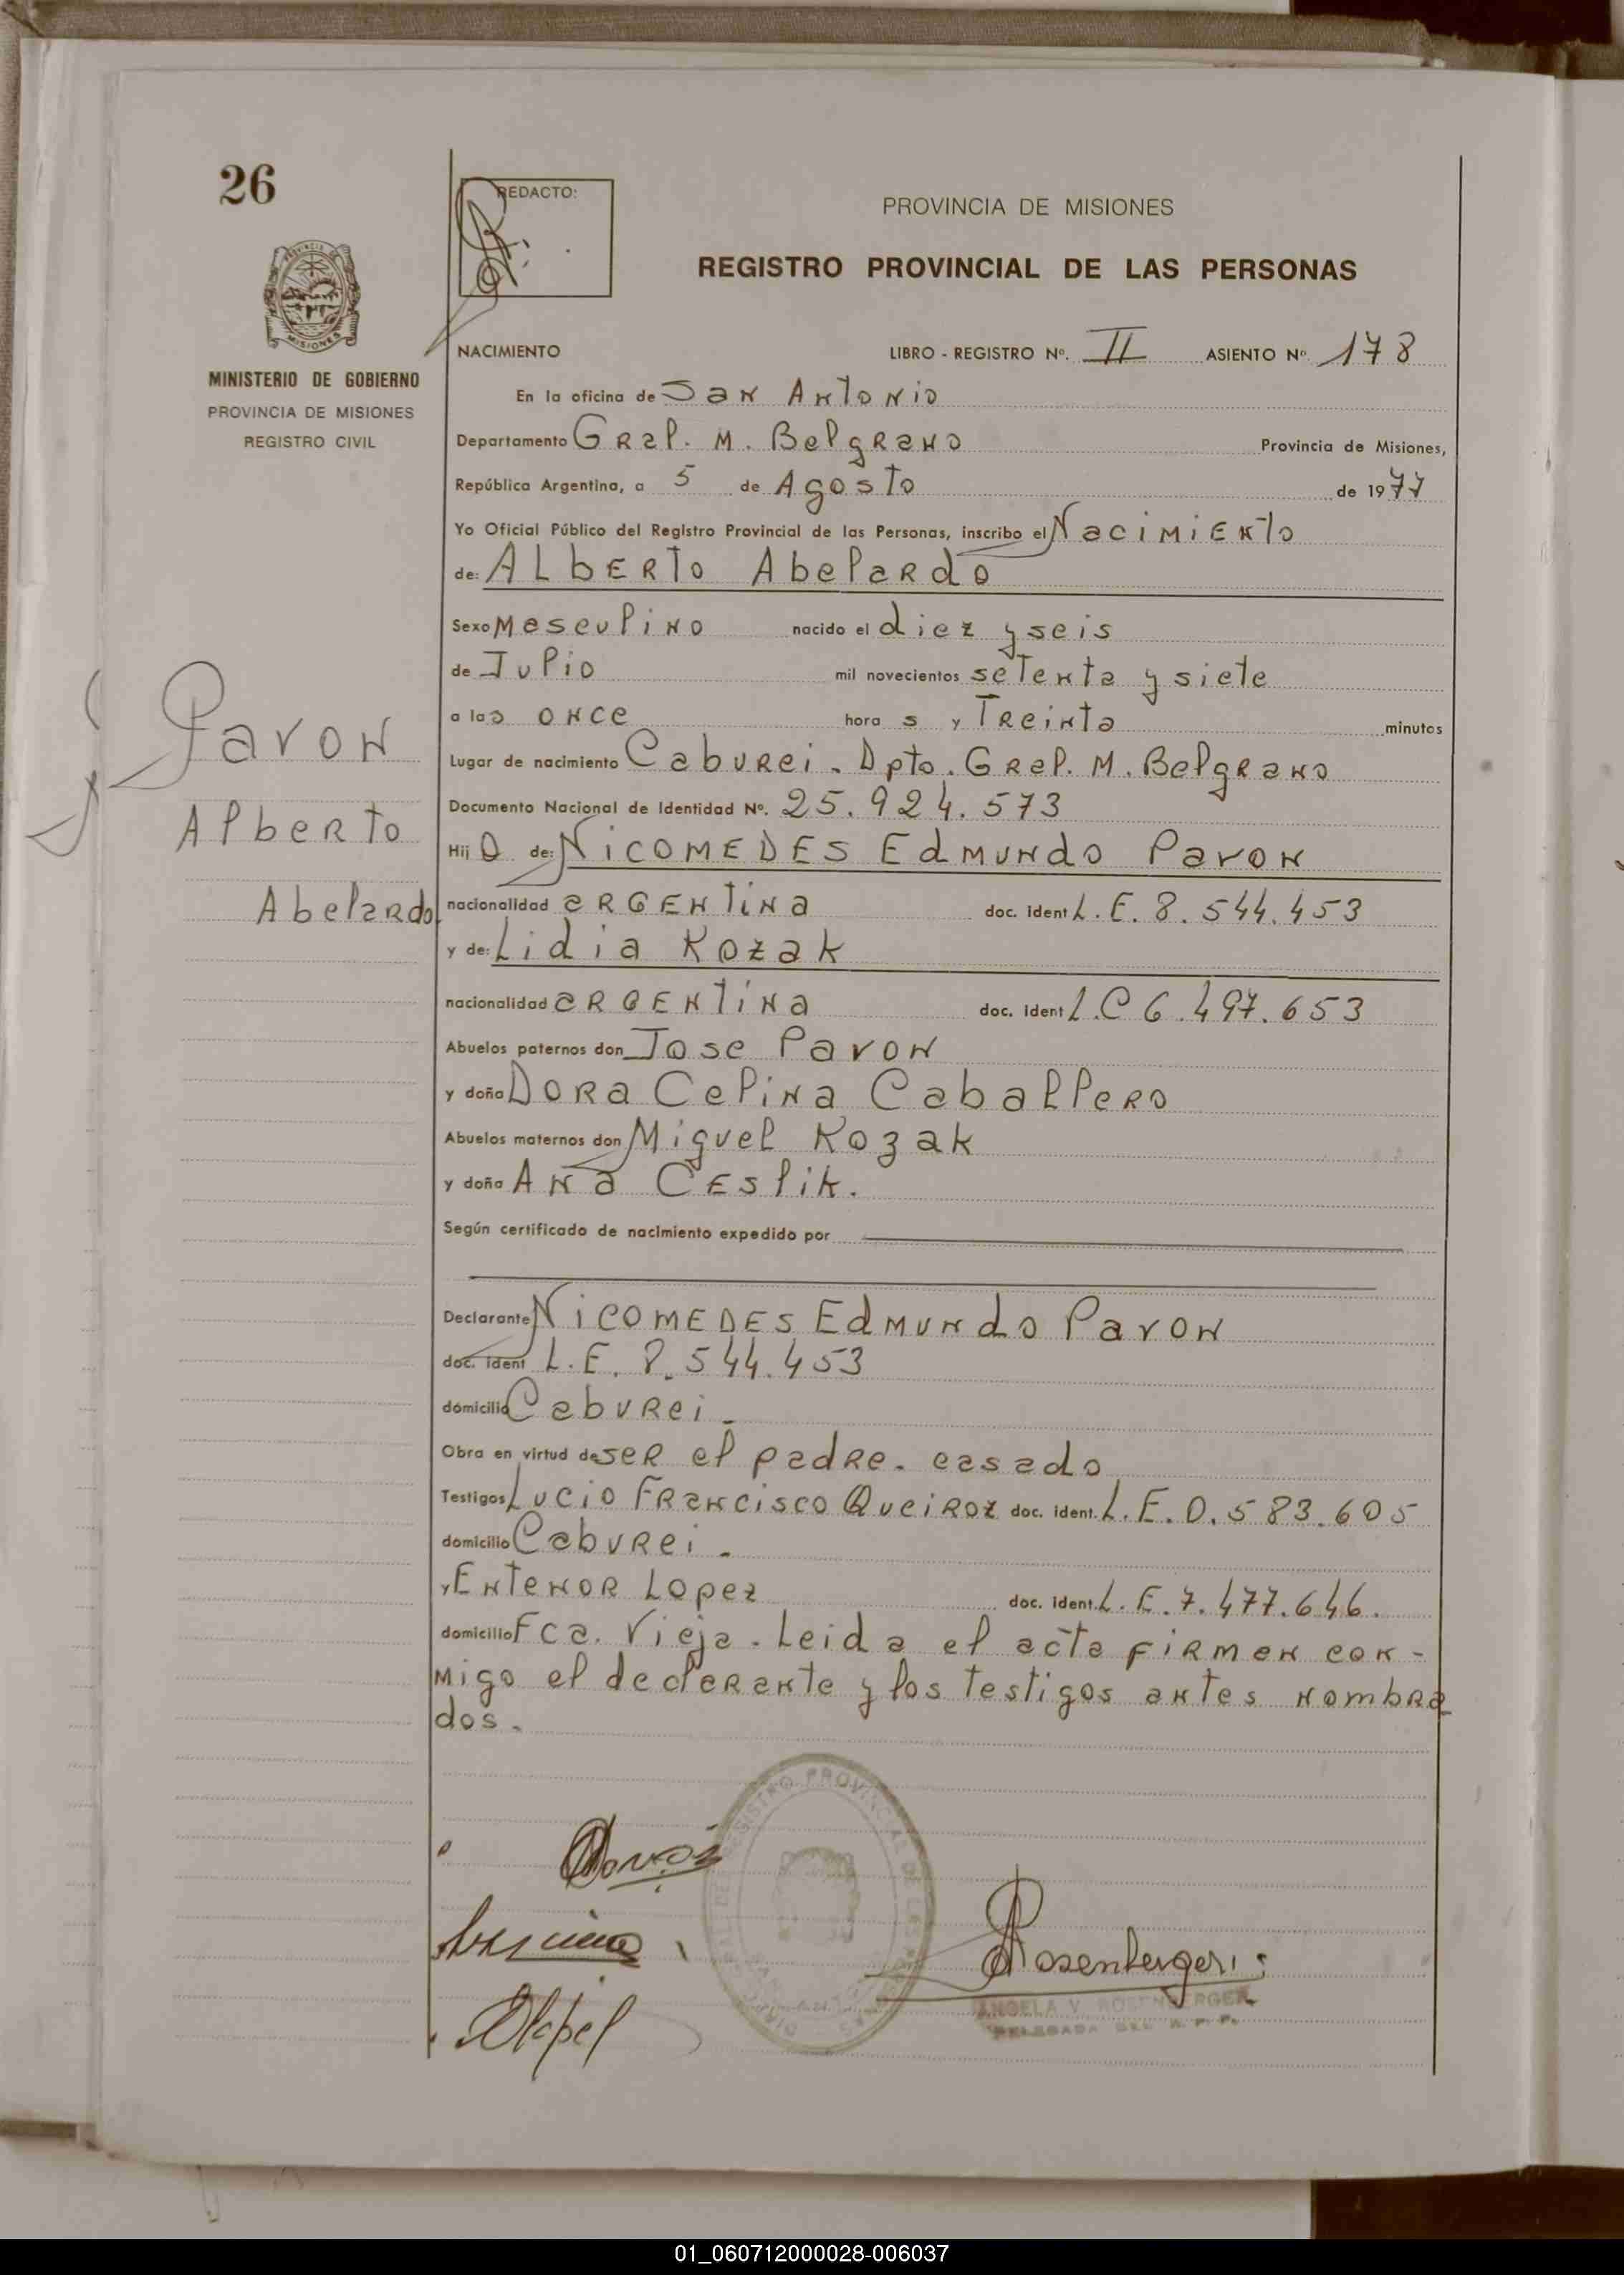 26
REDACTO:
PROVINCIA DE MISIONES
REGISTRO PROVINCIAL DE LAS PERSONAS
MISIONES
MINISTERIO DE GOBIERNO
PROVINCIA DE MISIONES
REGISTRO CIVIL
NACIMIENTO LIBRO - REGISTRO Nº. II ASIENTO Nº 178
En la oficina de San Antonio
Departamento Gral. M. Belgrano Provincia de Misiones,
República Argentina, a 5 de Agosto de 1977
Yo Oficial Público del Registro Provincial de las Personas, inscribo el Nacimiento
de: ALbERTo Abelardo
Sexo Masculino nacido el diez y seis
de Julio mil novecientos setenta y siete
a las once hora s y Treinta minutos
Lugar de nacimiento Caburei. Dpto. Gral. M. Belgrano
Documento Nacional de Identidad Nº. 25.924.573
Hij o de: NicOMEDES Edmundo Pavon
nacionalidad argentina doc. ident L.E. 8.544.453
y de: Lidia Kozak
nacionalidad argentina doc. ident L.C 6.497.653
Abuelos paternos don Jose Pavon
y doña Dora Celina Caballero
Abuelos maternos don Miguel Kozak
y doña Ana Ceslik.
Según certificado de nacimiento expedido por
Declarante NicOMEDES Edmundo Pavon
doc. ident L.E. 8.544.453
domicilio Caburei.
Obra en virtud de ser el padre. casado
Testigos Lucio Francisco Queiroz doc. ident. L.E.0.583.605
domicilio Caburei.
y Entenor Lopez doc. ident. L.E.7.477.646.
domicilio Fca. Vieja. Leida el acta firman con-
migo el declarante y los testigos antes nombra
dos.
Pavon
Alberto
Abelardo
Rosenberger
ANGELA V. ROSENBERGER
DELEGADA DEL R. P. P.
01_060712000028-006037